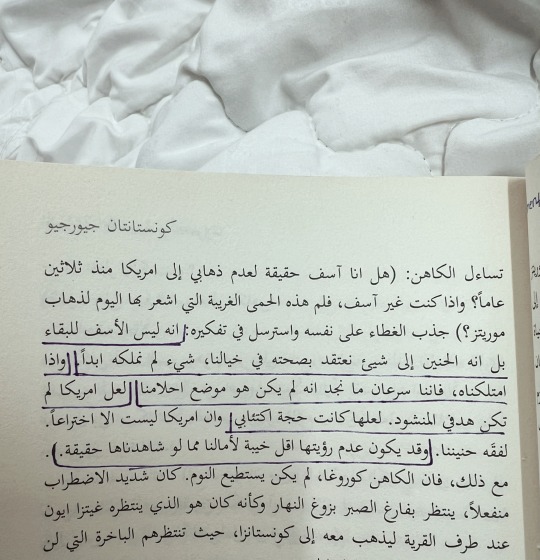 كونستانتان جيورجيو
تساءل الكاهن: (هل انا آسف حقيقة لعدم ذهابي إلى امريكا منذ ثلاثين
عاماً؟ واذا كنت غير آسف، فلم هذه الحمى الغريبة التي اشعر بها اليوم لذهاب
موريتز؟) جذب الغطاء على نفسه واسترسل في تفكيره: انه ليس الأسف للبقاء
بل انه الحنين إلى شيئ نعتقد بصحته في خيالنا، شيء لم نملكه ابداً. واذا
امتلكناه، فاننا سرعان ما نجد انه لم يكن هو موضع احلامنا. لعل امريكا لم
تكن هدفي المنشود. لعلها كانت حجة اكتئابي وان امريكا ليست الا اختراعاً.
لفقه حنيننا. وقد يكون عدم رؤيتها اقل خيبة لأمالنا مما لو شاهدناها حقيقة.)
مع ذلك، فان الكاهن كوروغا، لم يكن يستطيع النوم. كان شديد الاضطراب
منفعلاً، ينتظر بفارغ الصبر بزوغ النهار وكأنه كان هو الذي ينتظره غيتزا ايون
عند طرف القرية ليذهب معه إلى كونستانزا، حيث تنتظرهم الباخرة التي لن